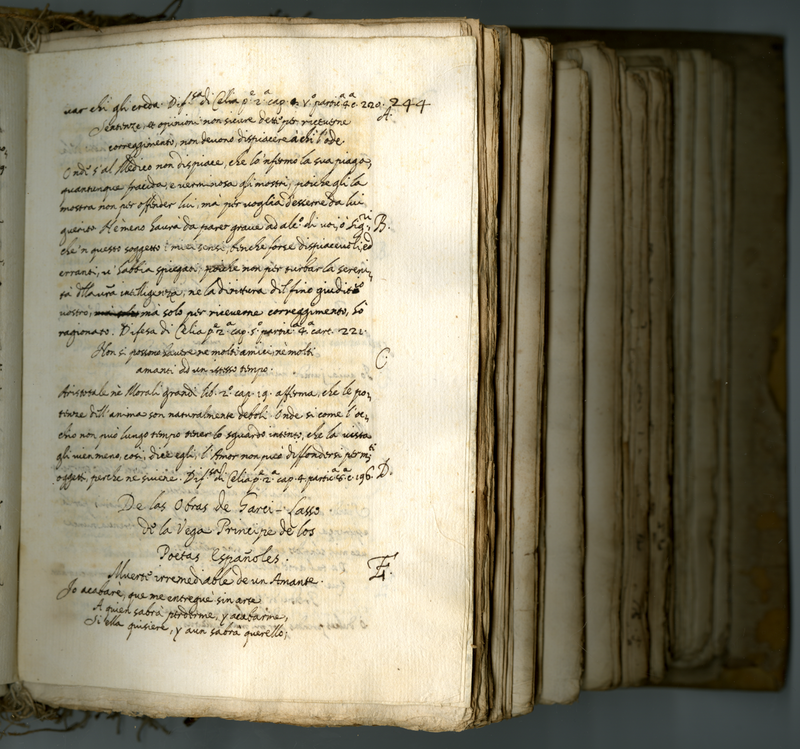 uar chi gli creda. Dif.sa di Celia p.e 2.a cap. 4. partic.a 4.a c. 220. 244
A.
Sentenze, et opinioni non sicure dette per riceverne
correggimento, non devono dispiacere à chi l'ode
Onde s'al Medico non dispiace, che lo'nfermo la sua piaga,
quantunque fracida, e verminosa gli mostri, poiche egli la
mostra non per offender lui, ma per voglia d'essere da lui
guerito. Ne meno haurà da parer grave ad alc.o di voi, ò Sig.ri B.
che'n questo soggetto i miei sensi, benche forse dispiacevoli, ed
erranti, v'habbia spiegati, poiche non per turbar la sereni-
tà della vr̃a intelligenza, ne la dirittura del fino giuditio
vostro, ma solo per riceverne correggimento, hò
ragionato. Difesa di Celia p.e 2.a cap. 5.o partic.a 4.a cart. 221.
Non si possono havere nè molti amici, nè molti C.
amanti ad un istesso tempo.
Aristotele nè Morali grandi lib. 2.o cap. 19. afferma, che le po-
tenze dell'anima son naturalmente deboli. Onde si come l'oc-
chio non può lungo tempo tener lo sguardo intento, che la vista
gli vien meno, così, dice egli, l'Amor non può diffondersi per m.ti
oggetti, perche ne sviene. Dif.sa di Celia p.e 2.a cap. 4. partic. c. 196. D.
De las Obras de Garci-Lasso
de la Vega Principe de los
Poetas Españoles.
E.
Muerte irremediable de un Amante.
Jo acabare, que me entregue sin arte
A quien sabrà perderme, y acabarme,
Si ella quisiere, y aun sabrà querello;